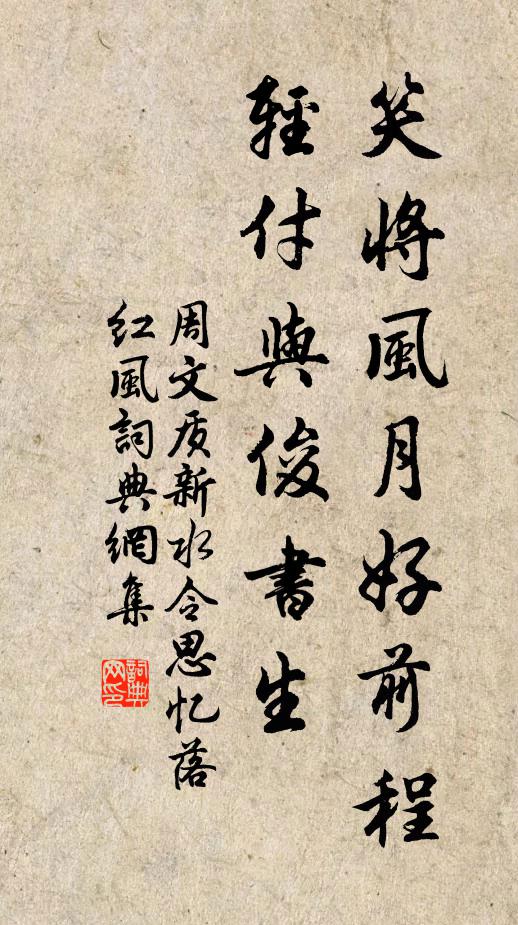 笑將風月好前程
輕付與俊書生
周文质新水令思忆落
红風詞典網集
詞典网印